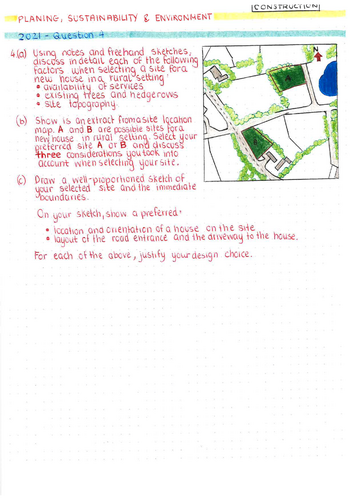 CONSTRUCTION
PLANNING, SUSTAINABILITY & ENVIRONMENT
2021 - Question 4
4.(a) Using notes and freehand sketches,
discuss in detail each of the following
factors when selecting a site for a
new house in a rural setting:
• availability of services
• existing trees and hedgerows
• site topography.
(b) Show is an extract from a site location
map. A and B are possible sites for a
new house in rural setting. Select your
preferred site A or B and discuss
three considerations you took into
account when selecting your site.
(c) Draw a well-proportioned sketch of
your selected site and the immediate
boundaries.
On your sketch, show a preferred:
• location and orientation of a house on the site
• layout of the road entrance and the driveway to the house.
For each of the above, justify your design choice.
N
A